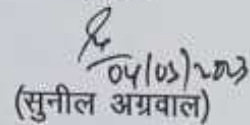 04/03/2023
(सुनील अग्रवाल)